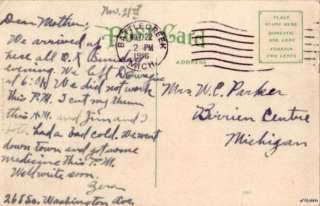 Nov. 21st
Post Card
Dear Mother;
We arrived
here all O.K. Sunday
evening. We left Dowagiac
at 6:01. We did not work
this P.M. I cut my thumb
this A.M. and Jim and I
both had a bad cold. We went
down town and got some
medicine this P.M.
Will write soon.
265 So. Washington Ave.
BATTLE CREEK
NOV 22
2 PM
1916
MICH.
ADDRESS
PLACE
STAMP HERE
DOMESTIC
ONE CENT
FOREIGN
TWO CENTS
Mrs W. C. Parker
Berrien Centre
Michigan